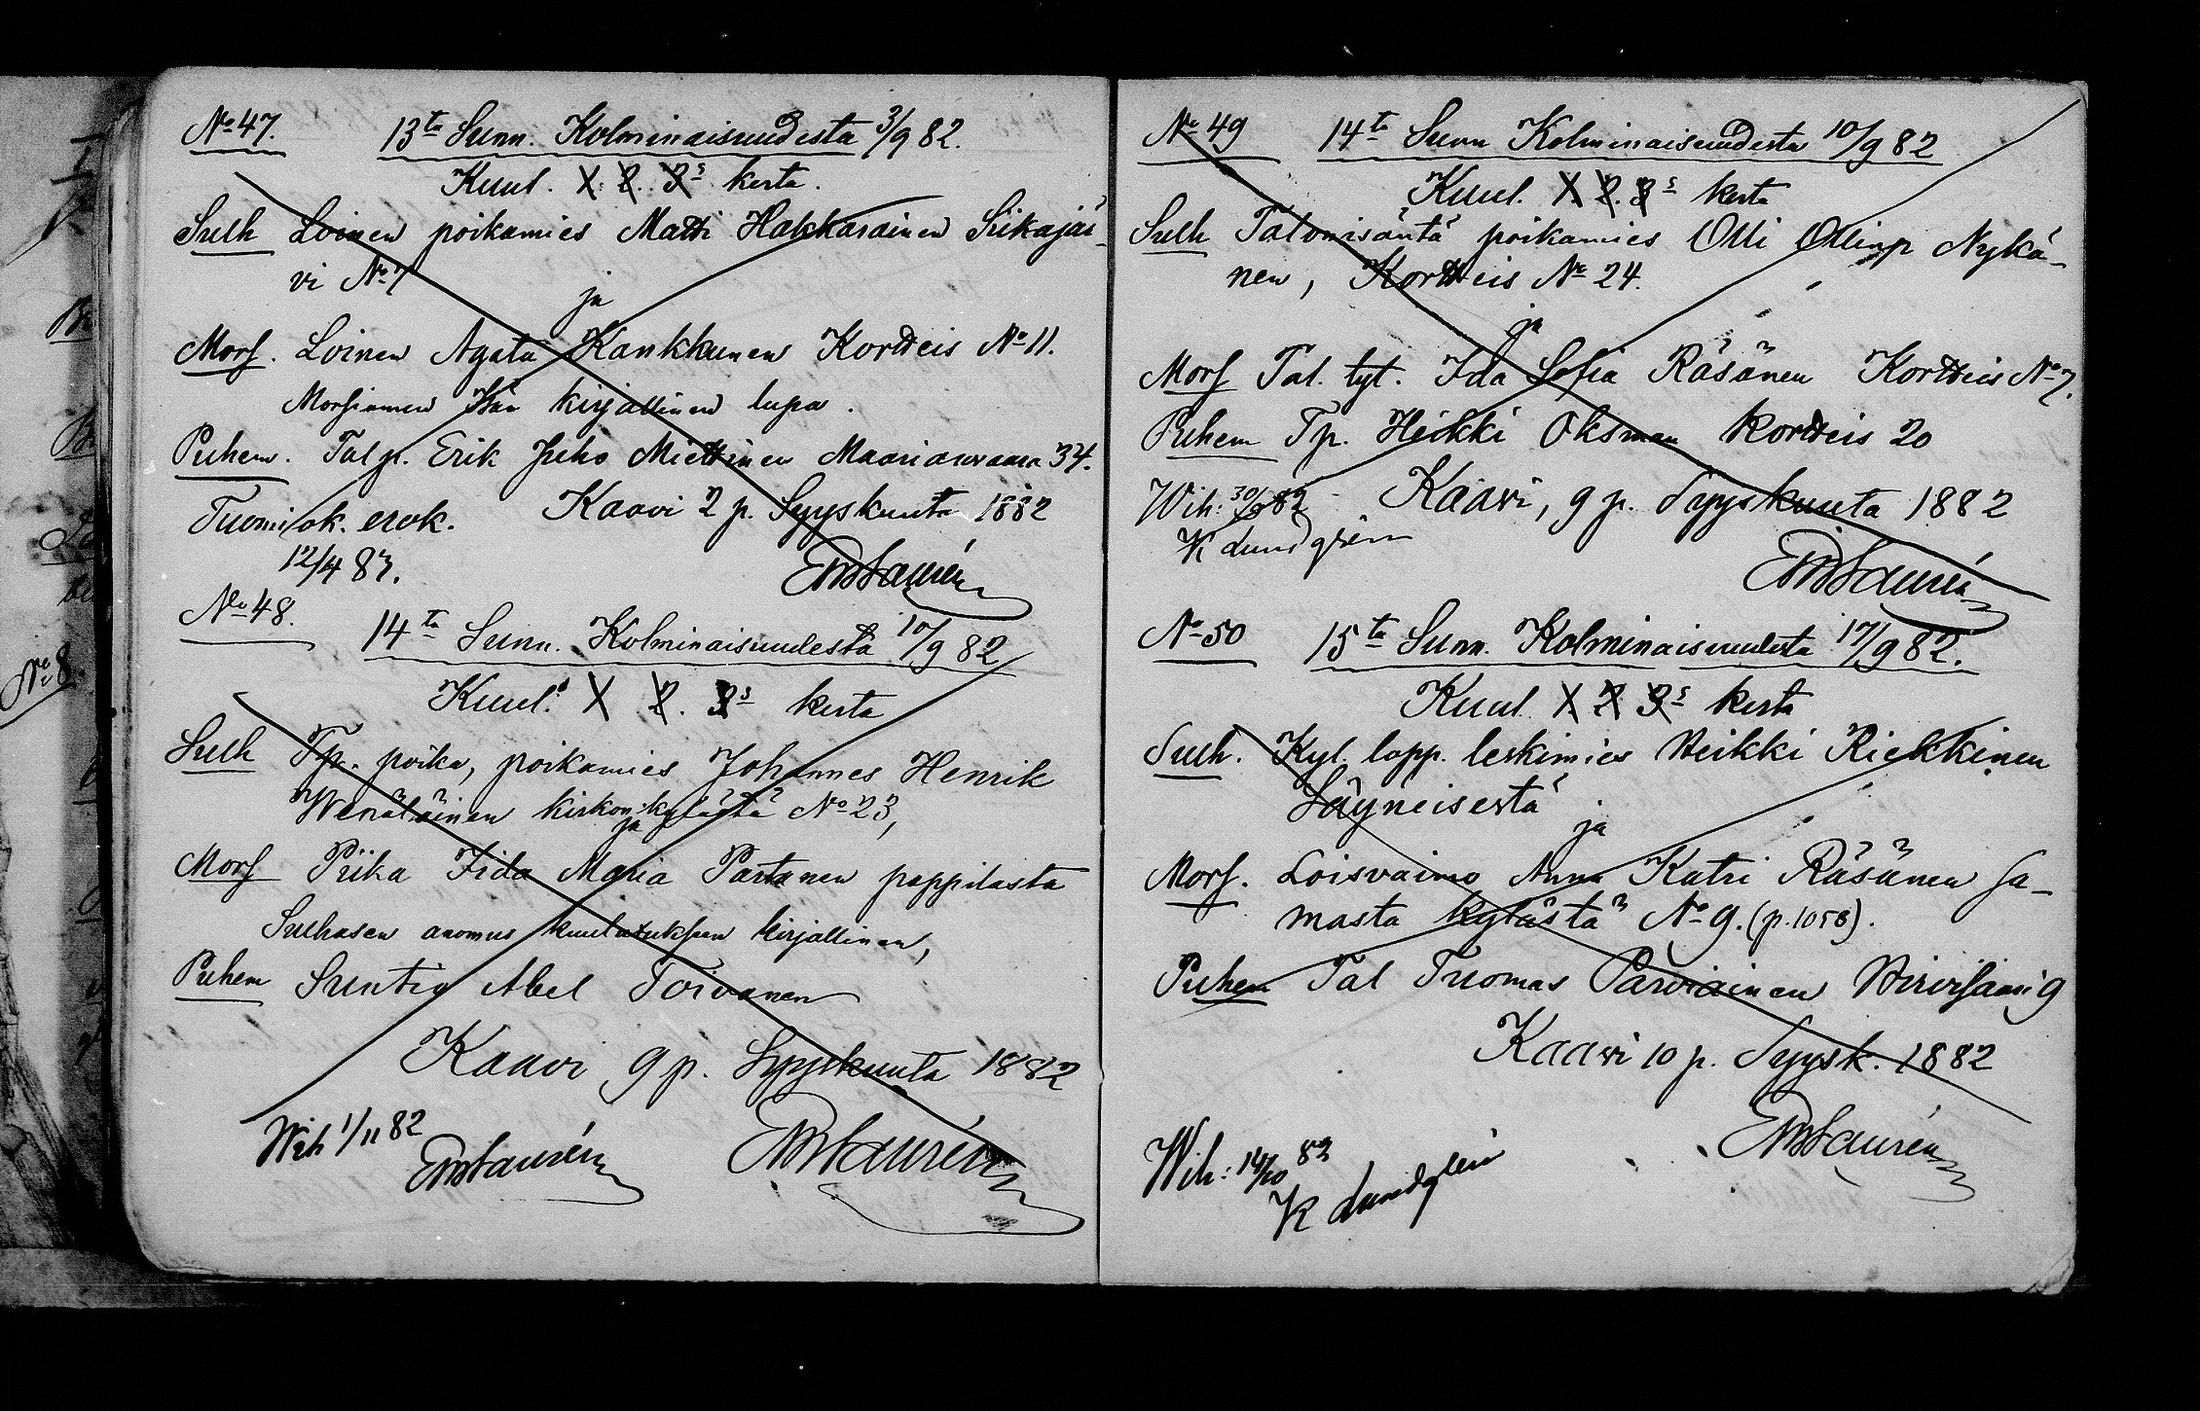 No 47. 13ta Sunn. Kolminaisuudesta 3/9 82.
Kuul. 1. 2. 3s kerta.
Sulh Loinen poikamies Matti Hakkarainen Siikajär-
vi No 7
ja
Mors. Loinen Agata Kankkunen Kortteis No 11.
Morsiamen isän kirjallinen lupa.
Puhem. Tal p. Erik Juho Miettinen Maarianvaara 34.
Tuomiok. erok. Kaavi 2 p. Syyskuuta 1882
12/4 87.
EmLaurén
No 48.
14ta Sunn. Kolminaisuudesta 10/9 82
Kuul. 1 2. 3s kerta
Sulh Tpr. poika, poikamies Johannes Henrik
Wenäläinen kirkonkylästä No 23,
ja
Mors Piika Iida Maria Partanen pappilasta
Sulhasen anomus kuulutukseen kirjallinen,
Puhem Suntio Abel Toivanen
Kaavi 9 p. Syyskuuta 1882
Wih 1/11 82
EmLaurén EmLaurén
No 49 14ta Sunn Kolminaisuudesta 10/9 82
Kuul. 1 2. 3s kerta
Sulh Talonisäntä poikamies Olli Ollinp Nykä-
nen, Kortteis No 24.
ja
Mors Tal. tyt. Ida Sofia Räsänen Kortteis No 7.
Puhem Tp. Heikki Oksman Kortteis 20
Wih: 30/9 82 Kaavi, 9 p. Syyskuuta 1882
K Lundgrén
EmLaurén
No 50 15ta Sunn. Kolminaisuudesta 17/9 82.
Kuul 1 2 3s kerta
Sulh. Kyl. lapp. leskimies Heikki Riekkinen
Säyneisestä
ja
Mors. Loisvaimo Anna Katri Räsänen sa-
masta kylästä No 9. (p. 1058).
Puhem Tal Tuomas Parviainen Hirvisaari 9
Kaavi 10 p. Syysk. 1882
EmLaurén
Wih: 14/10 82
K Lundgrén
No 8.